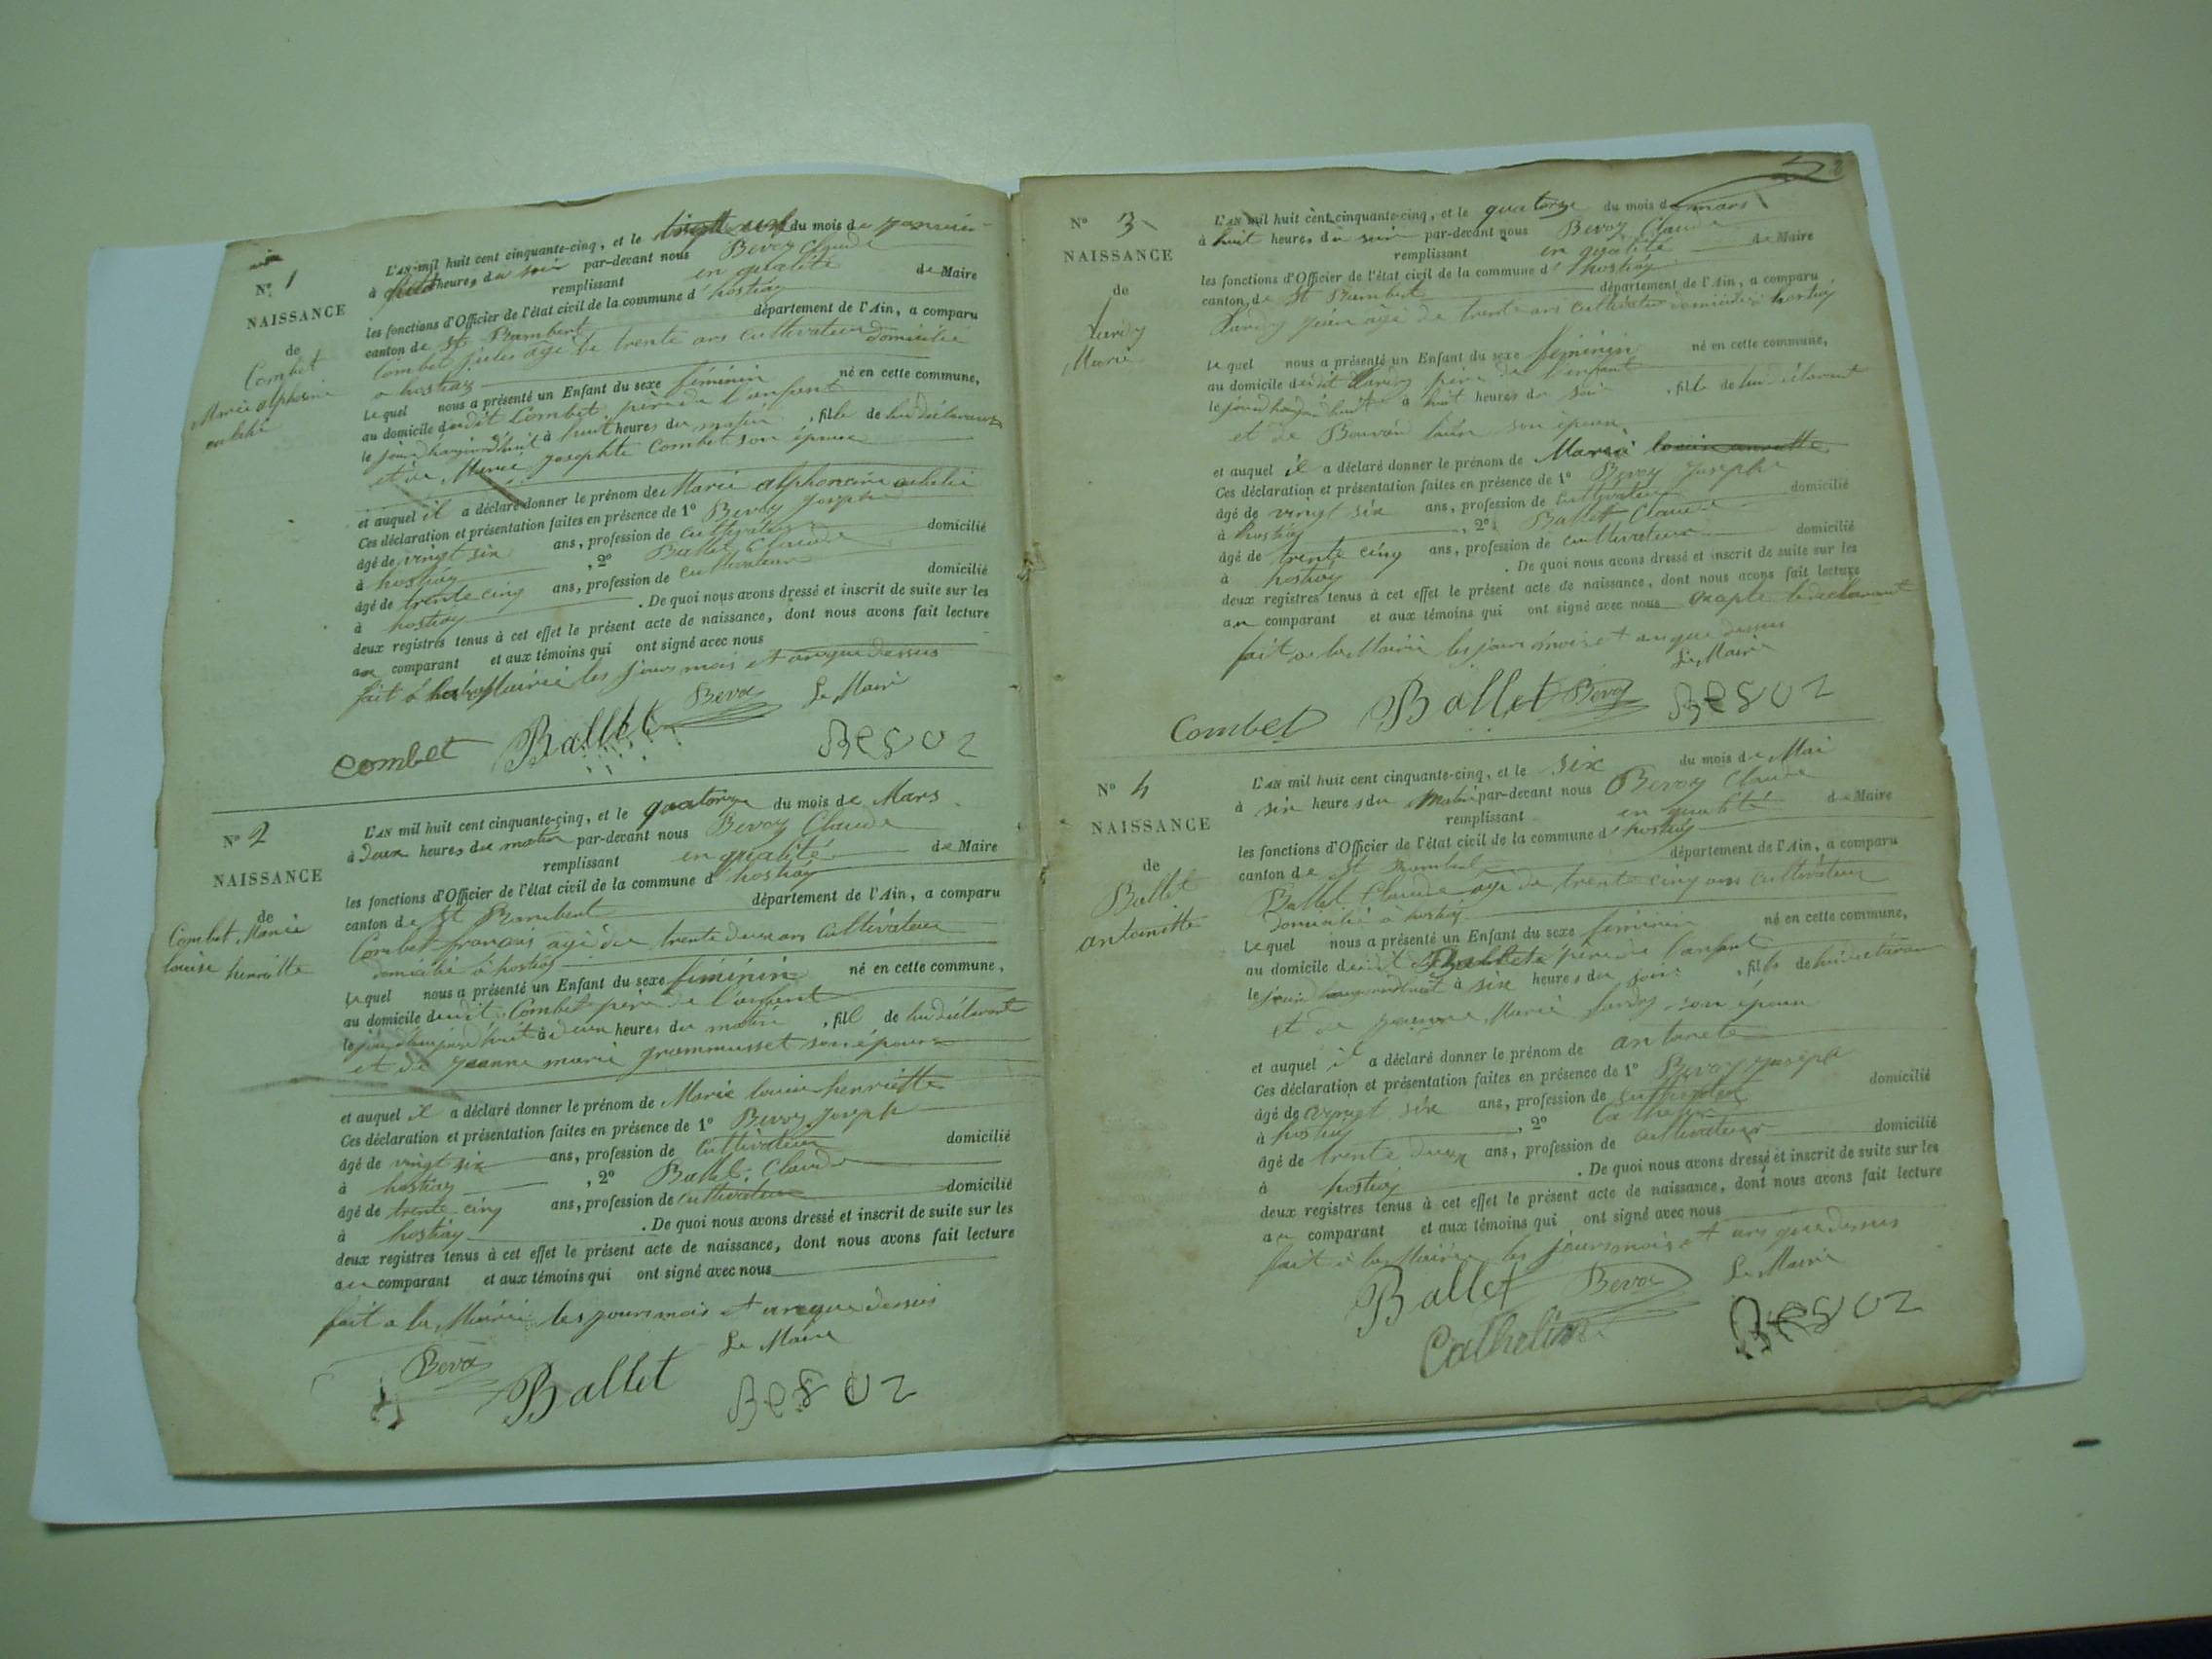 N° 1
NAISSANCE
de
Combet
Marie alphonsine
L'AN mil huit cent cinquante-cinq, et le du mois de janvier
à heures du soir par-devant nous Bevoz Claude
remplissant en qualité de Maire
les fonctions d'Officier de l'état civil de la commune d'hostiaz
canton de St Rambert département de l'Ain, a comparu
Combet jules agé de trente ans cultivateur domicilié
a hostiaz
Lequel nous a présenté un Enfant du sexe féminin né en cette commune,
au domicile dudit Combet père de l'enfant
le jour d'aujourd'huit à huit heures du matin, fille de lui déclarant
et de Marie josephte Combet son épouse
et auquel il a déclaré donner le prénom de Marie alphonsine
Ces déclaration et présentation faites en présence de 1° Bevoz joseph
âgé de vingt six ans, profession de cultivateur domicilié
à hostiaz, 2° Ballet Claude
âgé de trente cinq ans, profession de cultivateur domicilié
à hostiaz. De quoi nous avons dressé et inscrit de suite sur les
deux registres tenus à cet effet le présent acte de naissance, dont nous avons fait lecture
au comparant et aux témoins qui ont signé avec nous
fait à Mairie les jours mois et an que dessus
Bevoz Le Maire
Combet Ballet Bevoz
N° 2
NAISSANCE
de
Combet Marie
louise henriette
L'AN mil huit cent cinquante-cinq, et le quatorze du mois de Mars
à deux heures du matin par-devant nous Bevoz Claude
remplissant en qualité de Maire
les fonctions d'Officier de l'état civil de la commune d'hostiaz
canton de St Rambert département de l'Ain, a comparu
Combet françois agé de trente deux ans cultivateur
domicilié à hostiaz
Lequel nous a présenté un Enfant du sexe féminin né en cette commune,
au domicile dudit Combet père de l'enfant
le jour d'aujourd'huit à deux heures du matin, fill de lui déclarant
et de jeanne marie grammusset son épouse
et auquel il a déclaré donner le prénom de Marie louise henriette
Ces déclaration et présentation faites en présence de 1° Bevoz joseph
âgé de vingt six ans, profession de cultivateur domicilié
à hostiaz, 2° Ballet Claude
âgé de trente cinq ans, profession de cultivateur domicilié
à hostiaz. De quoi nous avons dressé et inscrit de suite sur les
deux registres tenus à cet effet le présent acte de naissance, dont nous avons fait lecture
au comparant et aux témoins qui ont signé avec nous
fait a la Mairie les jours mois et an que dessus
Le Maire
Bevoz Ballet Bevoz
N° 3
NAISSANCE
de
Marie
L'AN mil huit cent cinquante-cinq, et le quatorze du mois de mars
à huit heures du soir par-devant nous Bevoz Claude
remplissant en qualité de Maire
les fonctions d'Officier de l'état civil de la commune d'hostiaz
canton de St Rambert département de l'Ain, a comparu
agé de trente ans cultivateur domicilié à hostiaz
Lequel nous a présenté un Enfant du sexe féminin né en cette commune,
au domicile dudit père de l'enfant
le jour d'aujourd'huit à huit heures du soir, fille de lui déclarant
et de son épouse
et auquel il a déclaré donner le prénom de Marie
Ces déclaration et présentation faites en présence de 1° Bevoz joseph
âgé de vingt six ans, profession de cultivateur domicilié
à hostiaz, 2° Ballet Claude
âgé de trente cinq ans, profession de cultivateur domicilié
à hostiaz. De quoi nous avons dressé et inscrit de suite sur les
deux registres tenus à cet effet le présent acte de naissance, dont nous avons fait lecture
au comparant et aux témoins qui ont signé avec nous
fait a la Mairie les jour mois et an que dessus
Le Maire
Combet Ballet Bevoz Bevoz
N° 4
NAISSANCE
de
Ballet
antoinette
L'AN mil huit cent cinquante-cinq, et le six du mois de Mai
à six heures du matin par-devant nous Bevoz Claude
remplissant en qualité de Maire
les fonctions d'Officier de l'état civil de la commune d'hostiaz
canton de St Rambert département de l'Ain, a comparu
Ballet Claude agé de trente cinq ans cultivateur
domicilié à hostiaz
Lequel nous a présenté un Enfant du sexe féminin né en cette commune,
au domicile dudit Ballet père de l'enfant
le jour à six heures du, fille de lui déclarant
et de jeanne Marie son épouse
et auquel il a déclaré donner le prénom de
Ces déclaration et présentation faites en présence de 1° Bevoz joseph
âgé de vingt six ans, profession de cultivateur domicilié
à hostiaz, 2° Cathelin
âgé de trente deux ans, profession de cultivateur domicilié
à hostiaz. De quoi nous avons dressé et inscrit de suite sur les
deux registres tenus à cet effet le présent acte de naissance, dont nous avons fait lecture
au comparant et aux témoins qui ont signé avec nous
fait à la Mairie les jours mois et ans que dessus
Ballet Bevoz Le Maire
Cathelin Bevoz